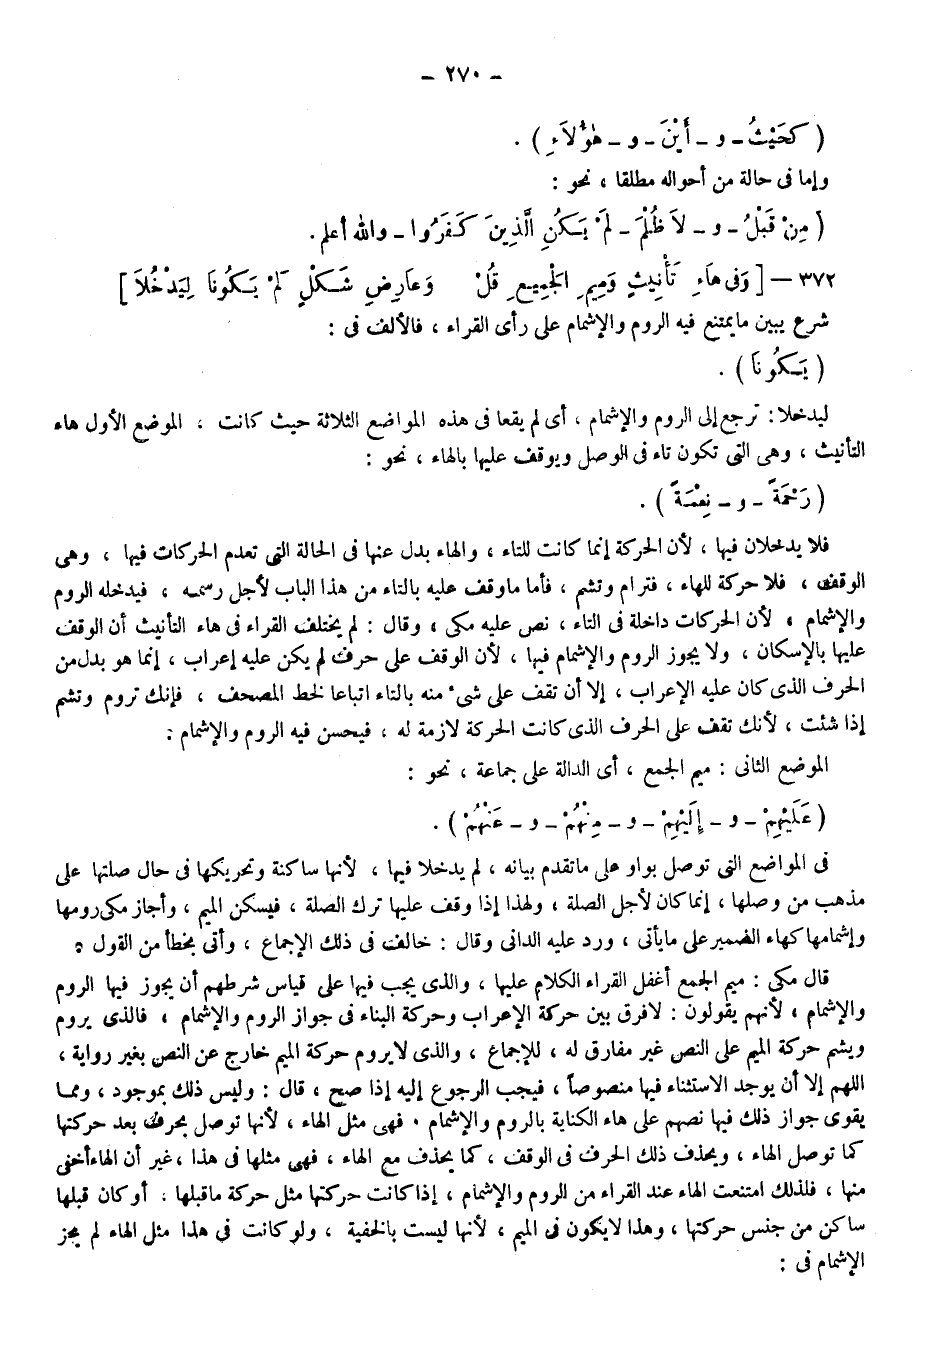 - ٢٧٠ -
( كَحَيْثُ - و - أَيْنَ - و - هٰؤُلَاءِ ) .
وإما فى حالة من أحواله مطلقا ، نحو :
( مِنْ قَبْلُ - و - لاَ ظُلْمَ - لَمْ يَكُنِ الَّذِينَ كَفَرُوا - والله أعلم .
٣٧٢ - [ وَفى هَاءِ تَأْنِيثٍ وَمِيمِ الْجَمِيعِ قُلْ وَعَارِضِ شَكْلٍ لَمْ يَكُونَا لِيَدْخُلاَ ]
شرع يبين مايمتنع فيه الروم والإشمام على رأى القراء ، فالألف فى :
( يَكُونَا ) .
ليدخلا : ترجع إلى الروم والإشمام ، أى لم يقعا فى هذه المواضع الثلاثة حيث كانت ، الموضع الأول هاء
التأنيث ، وهى التى تكون تاء فى الوصل ويوقف عليها بالهاء ، نحو :
( رَحْمَةً - و - نِعْمَةً ) .
فلا يدخلان فيها ، لأن الحركة إنما كانت للتاء ، والهاء بدل عنها فى الحالة التى تعدم الحركات فيها ، وهى
الوقف ، فلا حركة للهاء ، فترام وتشم ، فأما ماوقف عليه بالتاء من هذا الباب لأجل رسمه ، فيدخله الروم
والإشمام ، لأن الحركات داخلة فى التاء ، نص عليه مكى ، وقال : لم يختلف القراء فى هاء التأنيث أن الوقف
عليها بالإسكان ، ولا يجوز الروم والإشمام فيها ، لأن الوقف على حرف لم يكن عليه إعراب ، إنما هو بدل من
الحرف الذى كان عليه الإعراب ، إلا أن تقف على شىء منه بالتاء اتباعا لخط المصحف ، فإنك تروم وتشم
إذا شئت ، لأنك تقف على الحرف الذى كانت الحركة لازمة له ، فيحسن فيه الروم والإشمام :
الموضع الثانى : ميم الجمع ، أى الدالة على جماعة ، نحو :
( عَلَيْهِمْ - و - إِلَيْهِمْ - و - مِنْهُمْ - و - عَنْهُمْ ) .
فى المواضع التى توصل بواو على ماتقدم بيانه ، لم يدخلا فيها ، لأنها ساكنة وتحريكها فى حال صلتها على
مذهب من وصلها ، إنما كان لأجل الصلة ، ولهذا إذا وقف عليها ترك الصلة ، فيسكن الميم ، وأجاز مكى رومها
وإشمامها كهاء الضمير على مايأتى ، ورد عليه الدانى وقال : خالف فى ذلك الإجماع ، وأتى بخطأ من القول .
قال مكى : ميم الجمع أغفل القراء الكلام عليها ، والذى يجب فيها على قياس شرطهم أن يجوز فيها الروم
والإشمام ، لأنهم يقولون : لافرق بين حركة الإعراب وحركة البناء فى جواز الروم والإشمام ، فالذى يروم
ويشم حركة الميم على النص غير مفارق له ، للإجماع ، والذى لايروم حركة الميم خارج عن النص بغير رواية ،
اللهم إلا أن يوجد الاستثناء فيها منصوصاً ، فيجب الرجوع إليه إذا صح ، قال : وليس ذلك بموجود ، ومما
يقوى جواز ذلك فيها نصهم على هاء الكناية بالروم والإشمام . فهى مثل الهاء ، لأنها توصل بحرف بعد حركتها
كما توصل الهاء ، ويحذف ذلك الحرف فى الوقف ، كما يحذف مع الهاء ، فهى مثلها فى هذا ، غير أن الهاء أخفى
منها ، فلذلك امتنعت الهاء عند القراء من الروم والإشمام ، إذا كانت حركتها مثل حركة ماقبلها ، أو كان قبلها
ساكن من جنس حركتها ، وهذا لايكون فى الميم ، لأنها ليست بالخفية ، ولو كانت فى هذا مثل الهاء لم يجز
الإشمام فى :